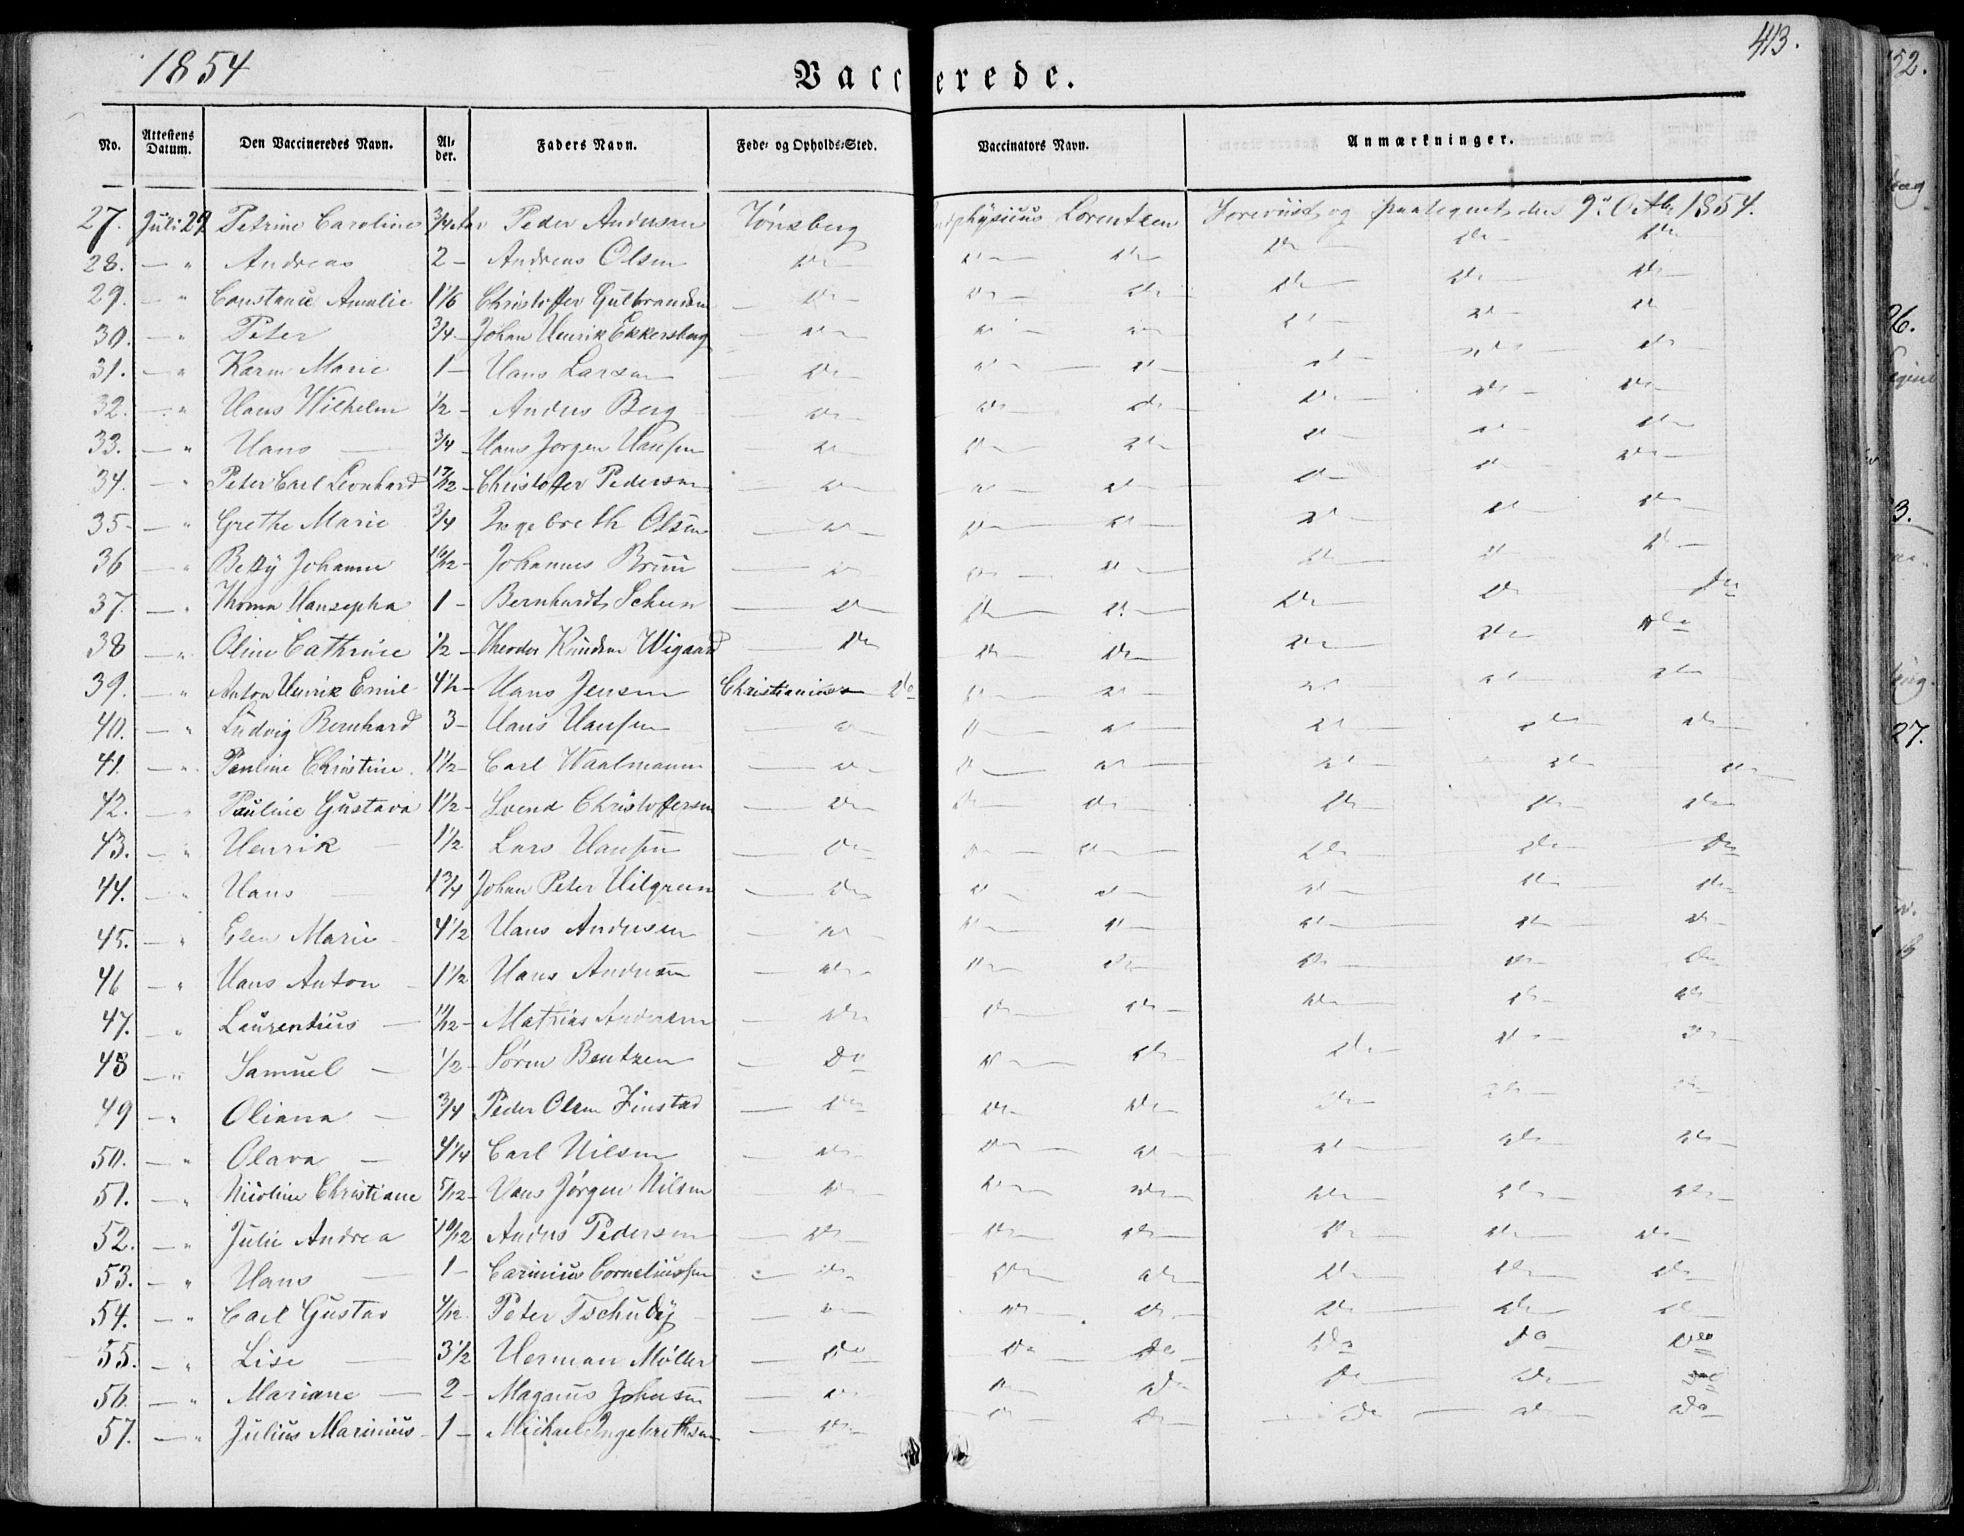 1854
Vaccinerede.
413.
No. Attestens Datum. Den Vaccineredes Navn. Alder. Faders Navn. Føde- og Opholds-Sted. Vaccinators Navn. Anmærkninger.
27. Juli 29 Petrine Caroline 3/4 Aar Peder Andersen Tønsberg Lorentzen Foreviist og paategnet den 9de Octb. 1854.
28. — " Andreas 2 — Andreas Olsen — Do — Do — Do — Do — Do — Do
29. — " Constance Amalie 1 1/6 Christoffer Gulbrandsen — Do — Do — Do — Do — Do — Do
30. — " Peter 3/4 — Johan Henrik Ekkersberg — Do — Do — Do — Do — Do — Do
31. — " Karen Marie 1 — Hans Larsen — Do — Do — Do — Do — Do — Do
32. — " Hans Wilhelm 1/2 — Anders Berg — Do — Do — Do — Do — Do — Do
33. — " Hans — 3/4 — Hans Jørgen Hansen — Do — Do — Do — Do — Do — Do
34. — " Peter Carl Leonhard Christoffer Pedersen — Do — Do — Do — Do — Do — Do
35 — " Grethe Marie 3/4 Ingebreth Olsen — Do — Do — Do — Do — Do — Do
36 — " Betsy Johanne 10/12 — Johannes Bruu — Do — Do — Do — Do — Do — Do
37. — " Thoma Hansepha 1 — Bernhardt — Do — Do — Do — Do — Do — Do
38 — " Oline Cathrine 1/2 — Theodor Knudsen Wigaard — Do — Do — Do — Do — Do — Do
39. — " Anton Henrik Emil 4 1/2 — Hans Jensen Do — Do — Do — Do — Do — Do
40. — " Ludvig Bernhard 3 — Hans Hansen — Do — Do — Do — Do — Do — Do
41. — " Pauline Christine. 1 1/2 — Carl Waalmann — Do — Do — Do — Do — Do — Do
42. — " Pauline Gustava 1 1/2 — Svend Christoffersen — Do — Do — Do — Do — Do — Do
43. — " Henrik — 1 1/2 Lars Hansen — Do — Do — Do — Do — Do — Do
44. — " Hans — 1 3/4 Johan Peter Hilgreen — Do — Do — Do — Do — Do — Do
45. — " Elen Marie 4 1/2 Hans Andersen — Do — Do — Do — Do — Do — Do
46 — " Hans Anton — 1 1/2 Hans Andersen — Do — Do — Do — Do — Do — Do
47. — " Laurentius — 11/12 — Mathias Andersen — Do — Do — Do — Do — Do — Do
48 — " Samuel — 1/2 — Søren Bentzen — Do — Do — Do — Do — Do — Do
49 — " Oliana — 3/4 Peder Olsen Finstad — Do — Do — Do — Do — Do — Do
50. — " Olava — 4 1/4 Carl Nilsen — Do — Do — Do — Do — Do — Do
51. — " Nicoline Christiane 5/12 — Hans Jørgen Nilsen — Do — Do — Do — Do — Do — Do
52. — " Julie Andrea 10/12 Anders Pedersen — Do — Do — Do — Do — Do — Do
53. — " Hans — 1 — Carinius Corneliussen — Do — Do — Do — Do — Do — Do
54. — " Carl Gustav 4/12 Peter Tschudy — Do — Do — Do — Do — Do — Do
55. — " Lise — 3 1/2 Herman Møller — Do — Do — Do — Do — Do — Do
56. — " Mariane — 2 — Magnus Johnsen — Do — Do — Do — Do — Do — Do
57. — " Julius Marinius — 1 — Michael Ingebrethsen — Do — Do — Do — Do — Do — Do